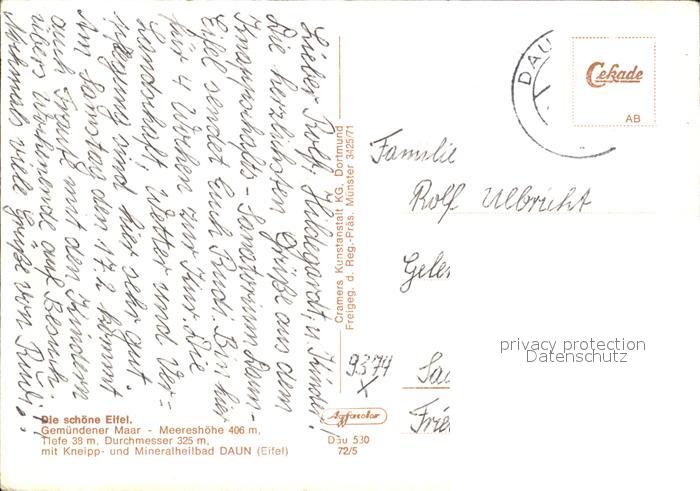 Lieber Rolf, Hildegardt, u. Kinder!
Die herzlichsten Grüße aus dem
Knappschafts-Sanatorium Daun-
Eifel sendet Euch Rudi. Bin hier
für 4 Wochen zur Kur. Die
Landschaft, Wetter und Ver-
pflegung sind hier sehr gut.
Am Samstag den 17.2 kommt
auch Traute mit den Kindern
übers Wochenende auf Besuch.
Nochmals viele Grüße von Rudi.
Die schöne Eifel.
Gemündener Maar - Meereshöhe 406 m,
Tiefe 38 m, Durchmesser 325 m,
mit Kneipp- und Mineralheilbad DAUN (Eifel)
Cramers Kunstanstalt KG, Dortmund
Freigeg. d. Reg.-Präs. Münster 3425/71
Agfacolor
Dau 530
72/5
DAU
Cekade
AB
Familie
Rolf Ulbricht
Gele
9374
X
Sa
Frie
privacy protection
Datenschutz